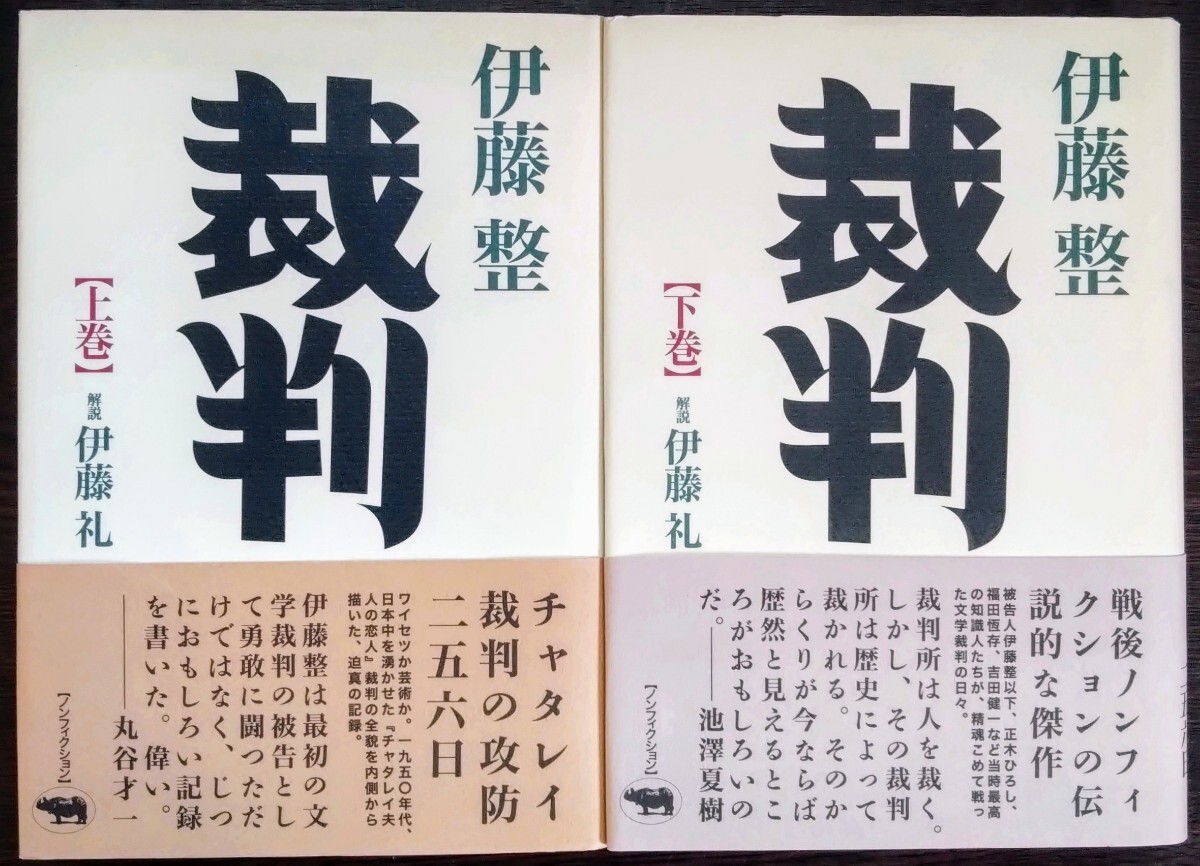 伊藤 整
裁判
【上巻】
解説 伊藤 礼
チャタレイ
裁判の攻防
一二五六日
ワイセツか芸術か。一九五〇年代、
日本中を湧かせた『チャタレイ夫
人の恋人』裁判の全貌を内側から
描いた、迫真の記録。
伊藤整は最初の文
学裁判の被告とし
て勇敢に闘っただ
けではなく、じつ
におもしろい記録
を書いた。偉い。
――丸谷才一
【ノンフィクション】
伊藤 整
裁判
【下巻】
解説 伊藤 礼
戦後ノンフィ
クションの伝
説的な傑作
被告人伊藤整以下、正木ひろし、
福田恆存、吉田健一など当時最高
の知識人たちが、精魂こめて戦っ
た文学裁判の日々。
裁判所は人を裁く。
しかし、その裁判
所は歴史によって
裁かれる。そのか
らくりが今ならば
歴然と見えるとこ
ろがおもしろいの
だ。――池澤夏樹
【ノンフィクション】